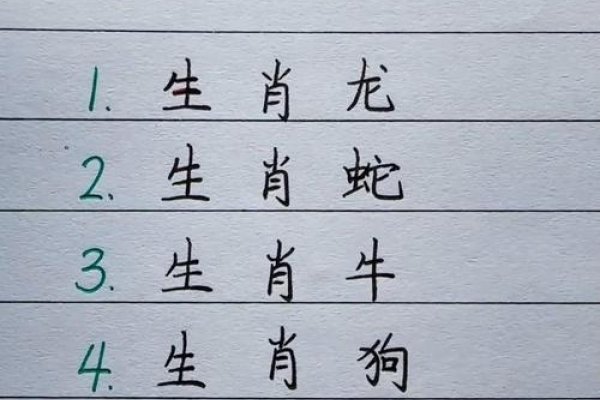 1. 生肖龙
2. 生肖蛇
3. 生肖牛
4. 生肖狗